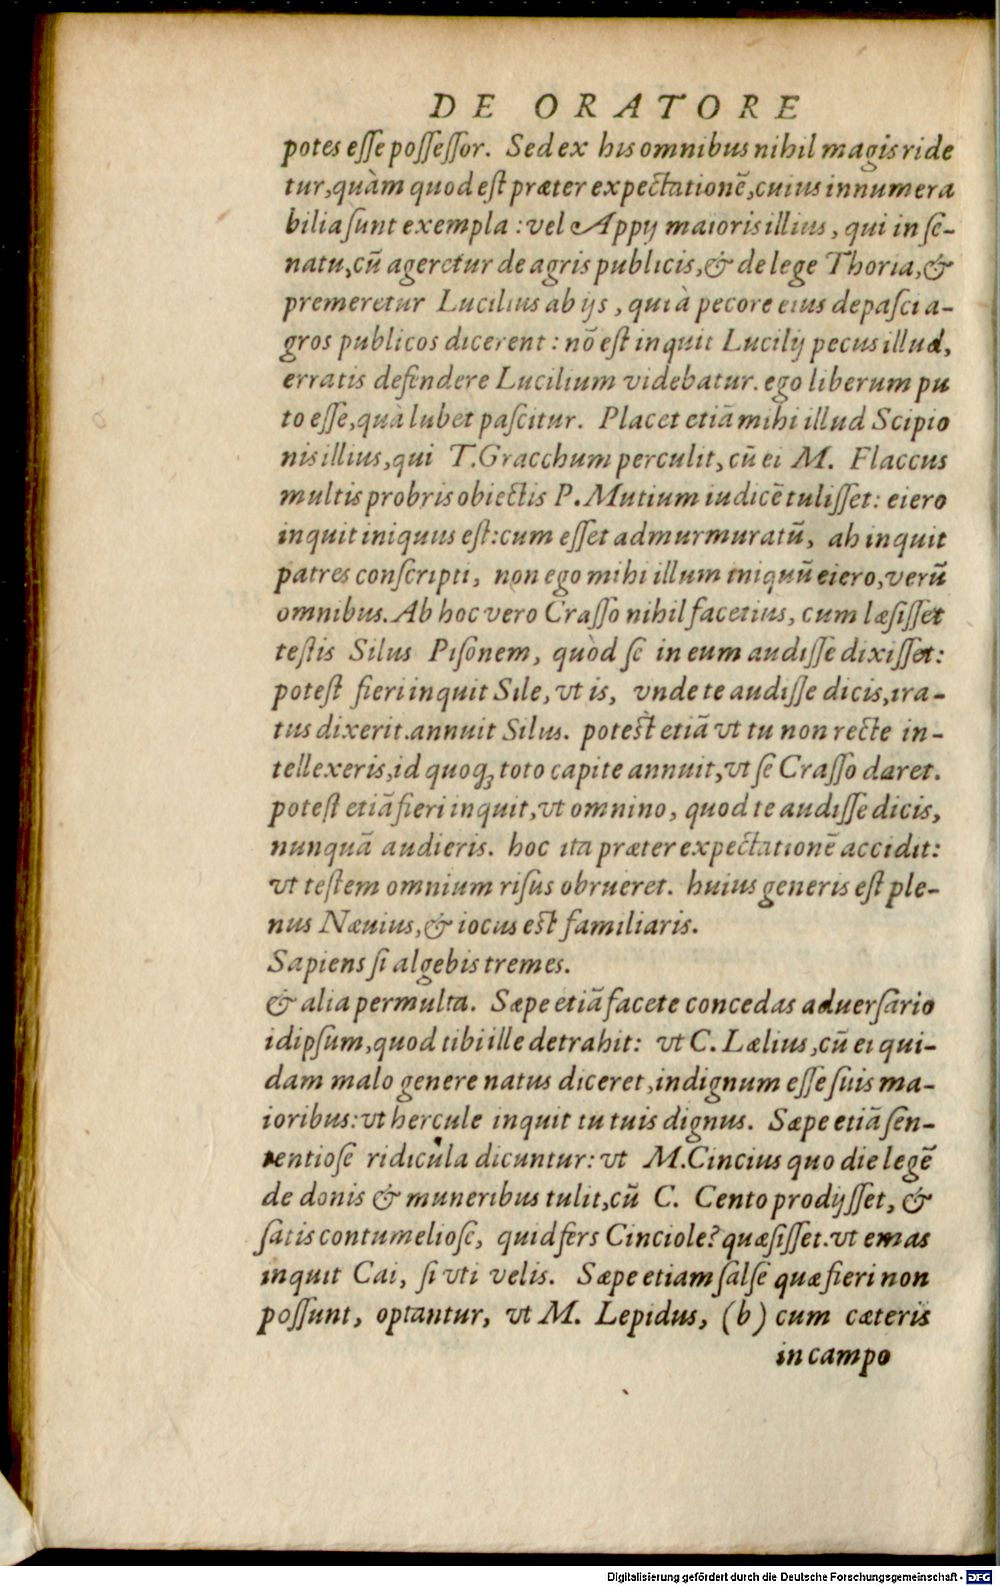 DE ORATORE
potes esse possessor. Sed ex his omnibus nihil magis ride
tur, quàm quod est præter expectationē, cuius innumera
bilia sunt exempla: vel Appij maioris illius, qui in se-
natu, cū ageretur de agris publicis, & de lege Thoria, &
premeretur Lucilius ab ijs, qui à pecore eius depasci a-
gros publicos dicerent: nō est inquit Lucilij pecus illud,
erratis defendere Lucilium videbatur. ego liberum pu
to esse, quà lubet pascitur. Placet etiā mihi illud Scipio
nis illius, qui T. Gracchum perculit, cū ei M. Flaccus
multis probris obiectis P. Mutium iudicē tulisset: eiero
inquit iniquus est: cum esset admurmuratū, ah inquit
patres conscripti, non ego mihi illum iniquū eiero, verū
omnibus. Ab hoc vero Crasso nihil facetius, cum læsisset
testis Silus Pisonem, quòd se in eum audisse dixisset:
potest fieri inquit Sile, vt is, vnde te audisse dicis, ira-
tus dixerit. annuit Silus. potest etiā vt tu non recte in-
tellexeris, id quoq; toto capite annuit, vt se Crasso daret.
potest etiā fieri inquit, vt omnino, quod te audisse dicis,
nunquā audieris. hoc ita præter expectationē accidit:
vt testem omnium risus obrueret. huius generis est ple-
nus Næuius, & iocus est familiaris.
Sapiens si algebis tremes.
& alia permulta. Sæpe etiā facete concedas aduersario
id ipsum, quod tibi ille detrahit: vt C. Lælius, cū ei qui-
dam malo genere natus diceret, indignum esse suis ma-
ioribus: vt hercule inquit tu tuis dignus. Sæpe etiā sen-
tentiose ridicula dicuntur: vt M. Cincius quo die legē
de donis & muneribus tulit, cū C. Cento prodijsset, &
satis contumeliose, quid fers Cinciole? quæsisset. vt emas
inquit Cai, si vti velis. Sæpe etiam salse quæ fieri non
possunt, optantur, vt M. Lepidus, (b) cum cæteris
in campo
Digitalisierung gefördert durch die Deutsche Forschungsgemeinschaft - DFG